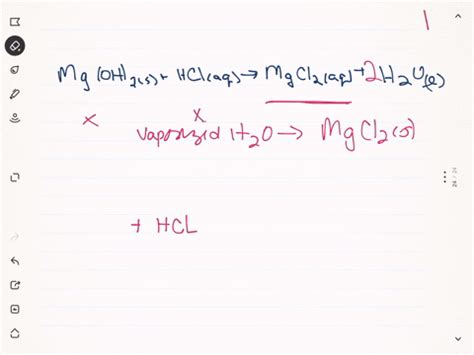 1
Mg(OH)2(s) + HCl(aq) → MgCl2(aq) + 2H2O(l)
x x
vaporized H2O → MgCl2(s)
+ HCL